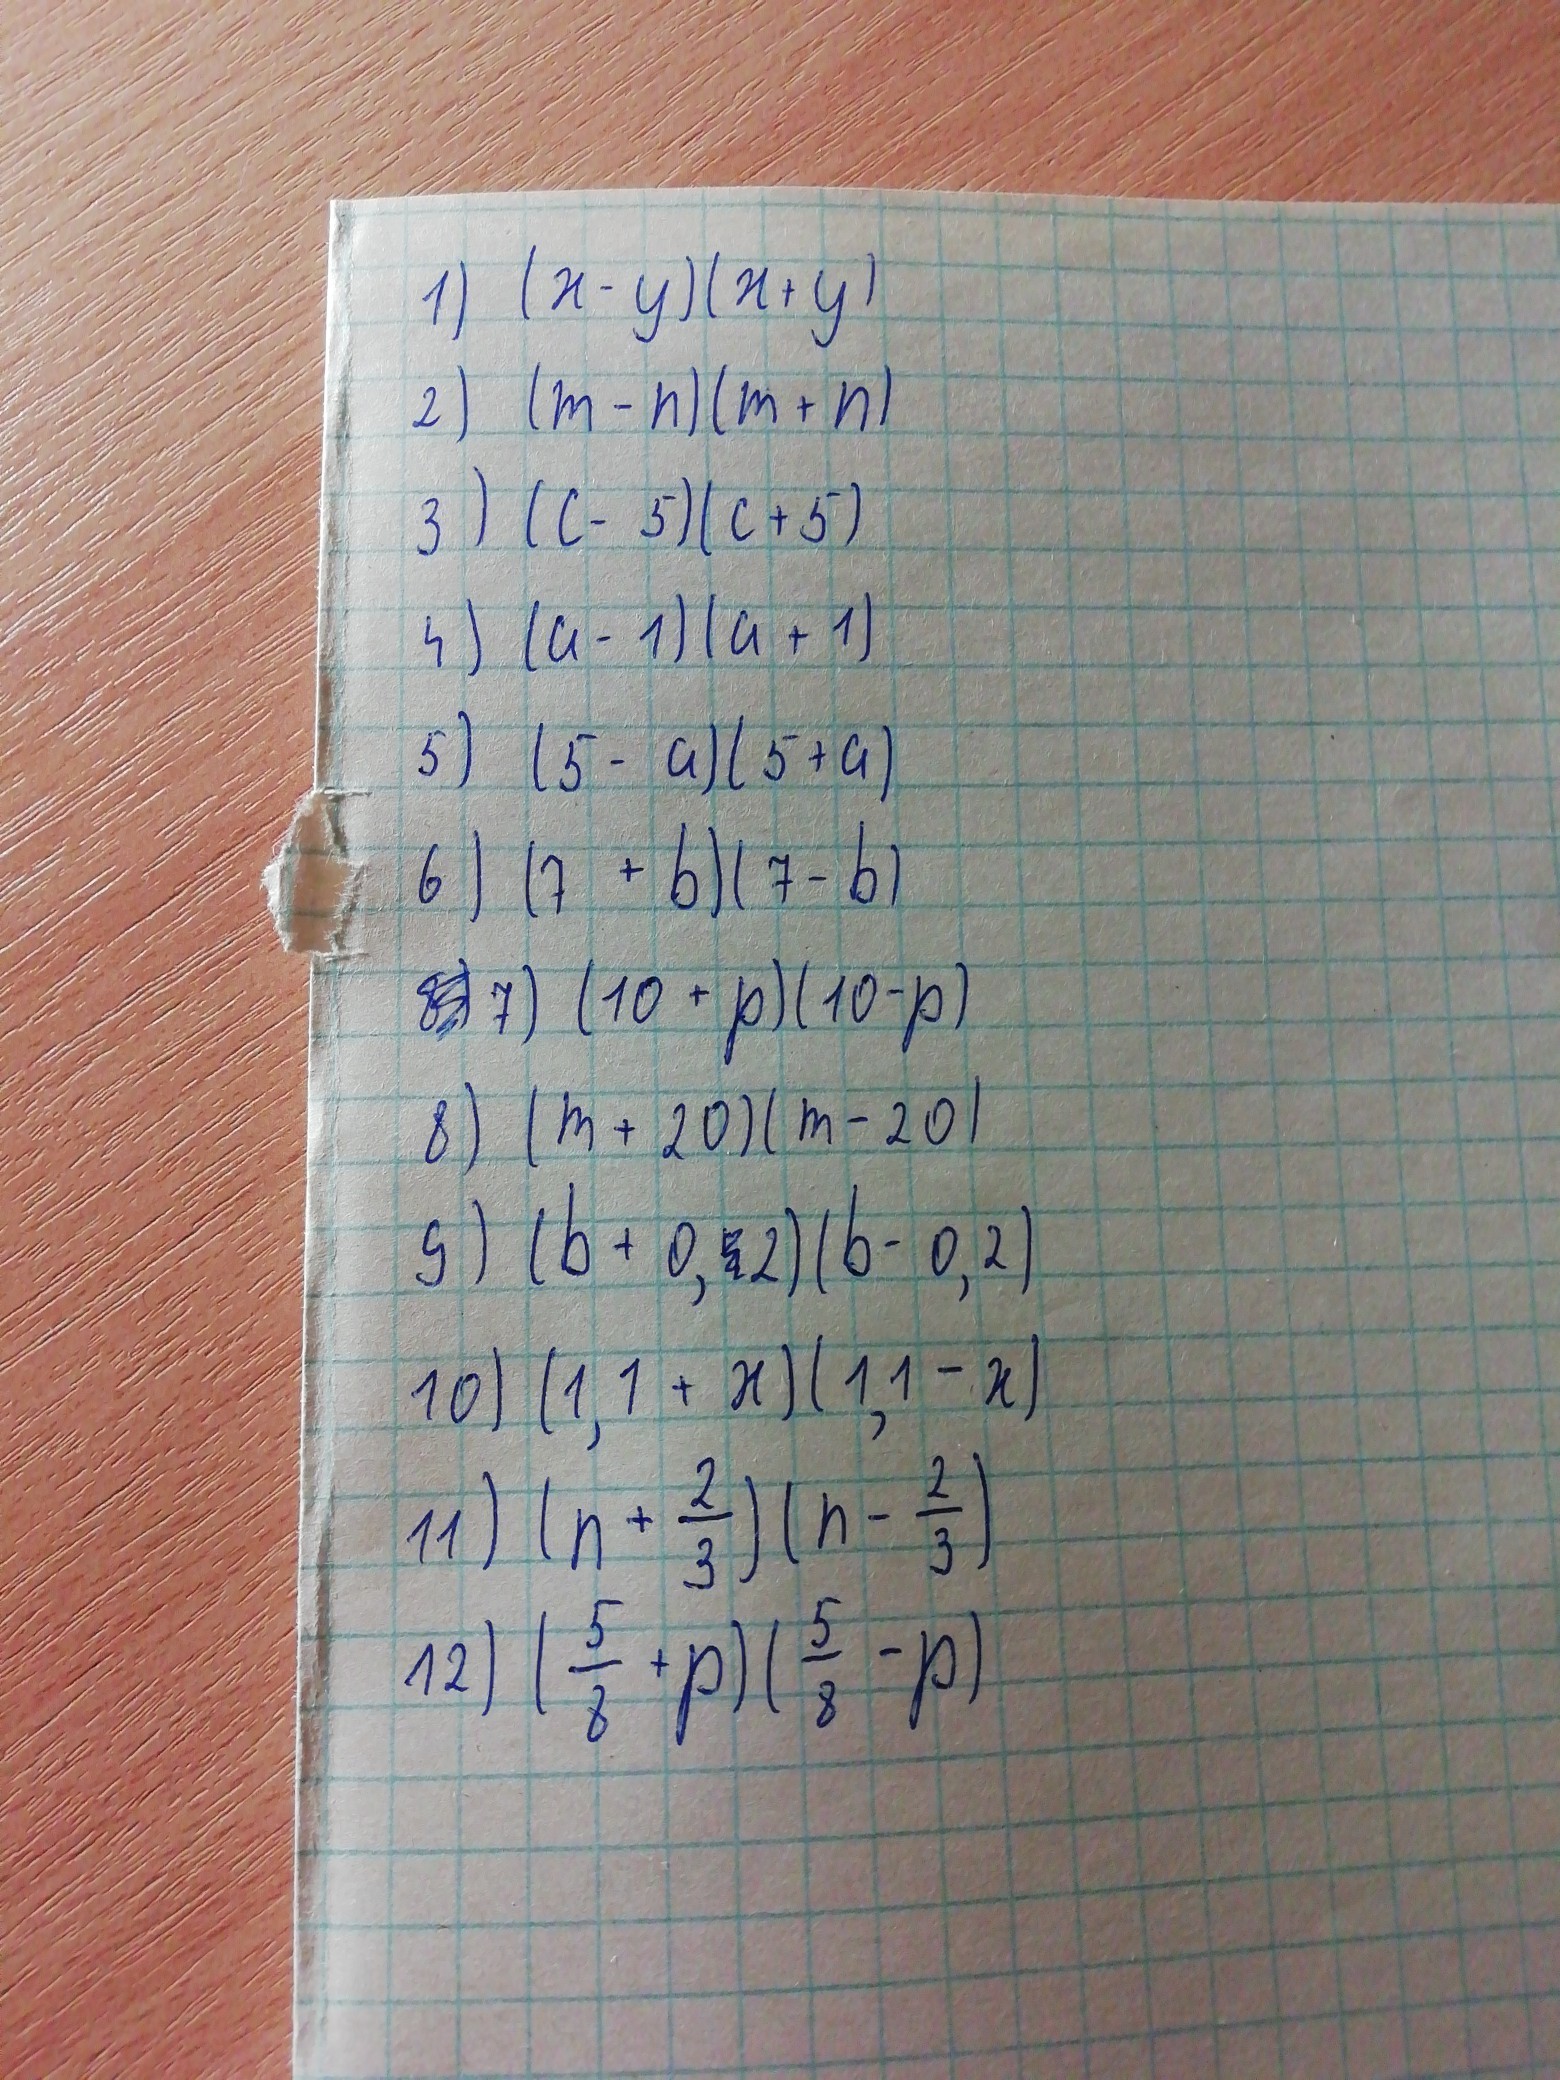 1) (x - y)(x + y)
2) (m - n)(m + n)
3) (c - 5)(c + 5)
4) (a - 1)(a + 1)
5) (5 - a)(5 + a)
6) (7 + b)(7 - b)
7) (10 + p)(10 - p)
8) (m + 20)(m - 20)
9) (b + 0,2)(b - 0,2)
10) (1,1 + x)(1,1 - x)
11) (n + 2/3)(n - 2/3)
12) (5/8 + p)(5/8 - p)